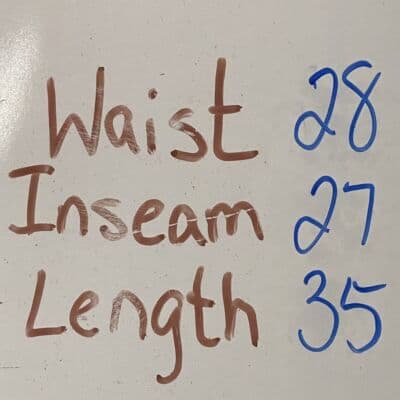 Waist 28
Inseam 27
Length 35